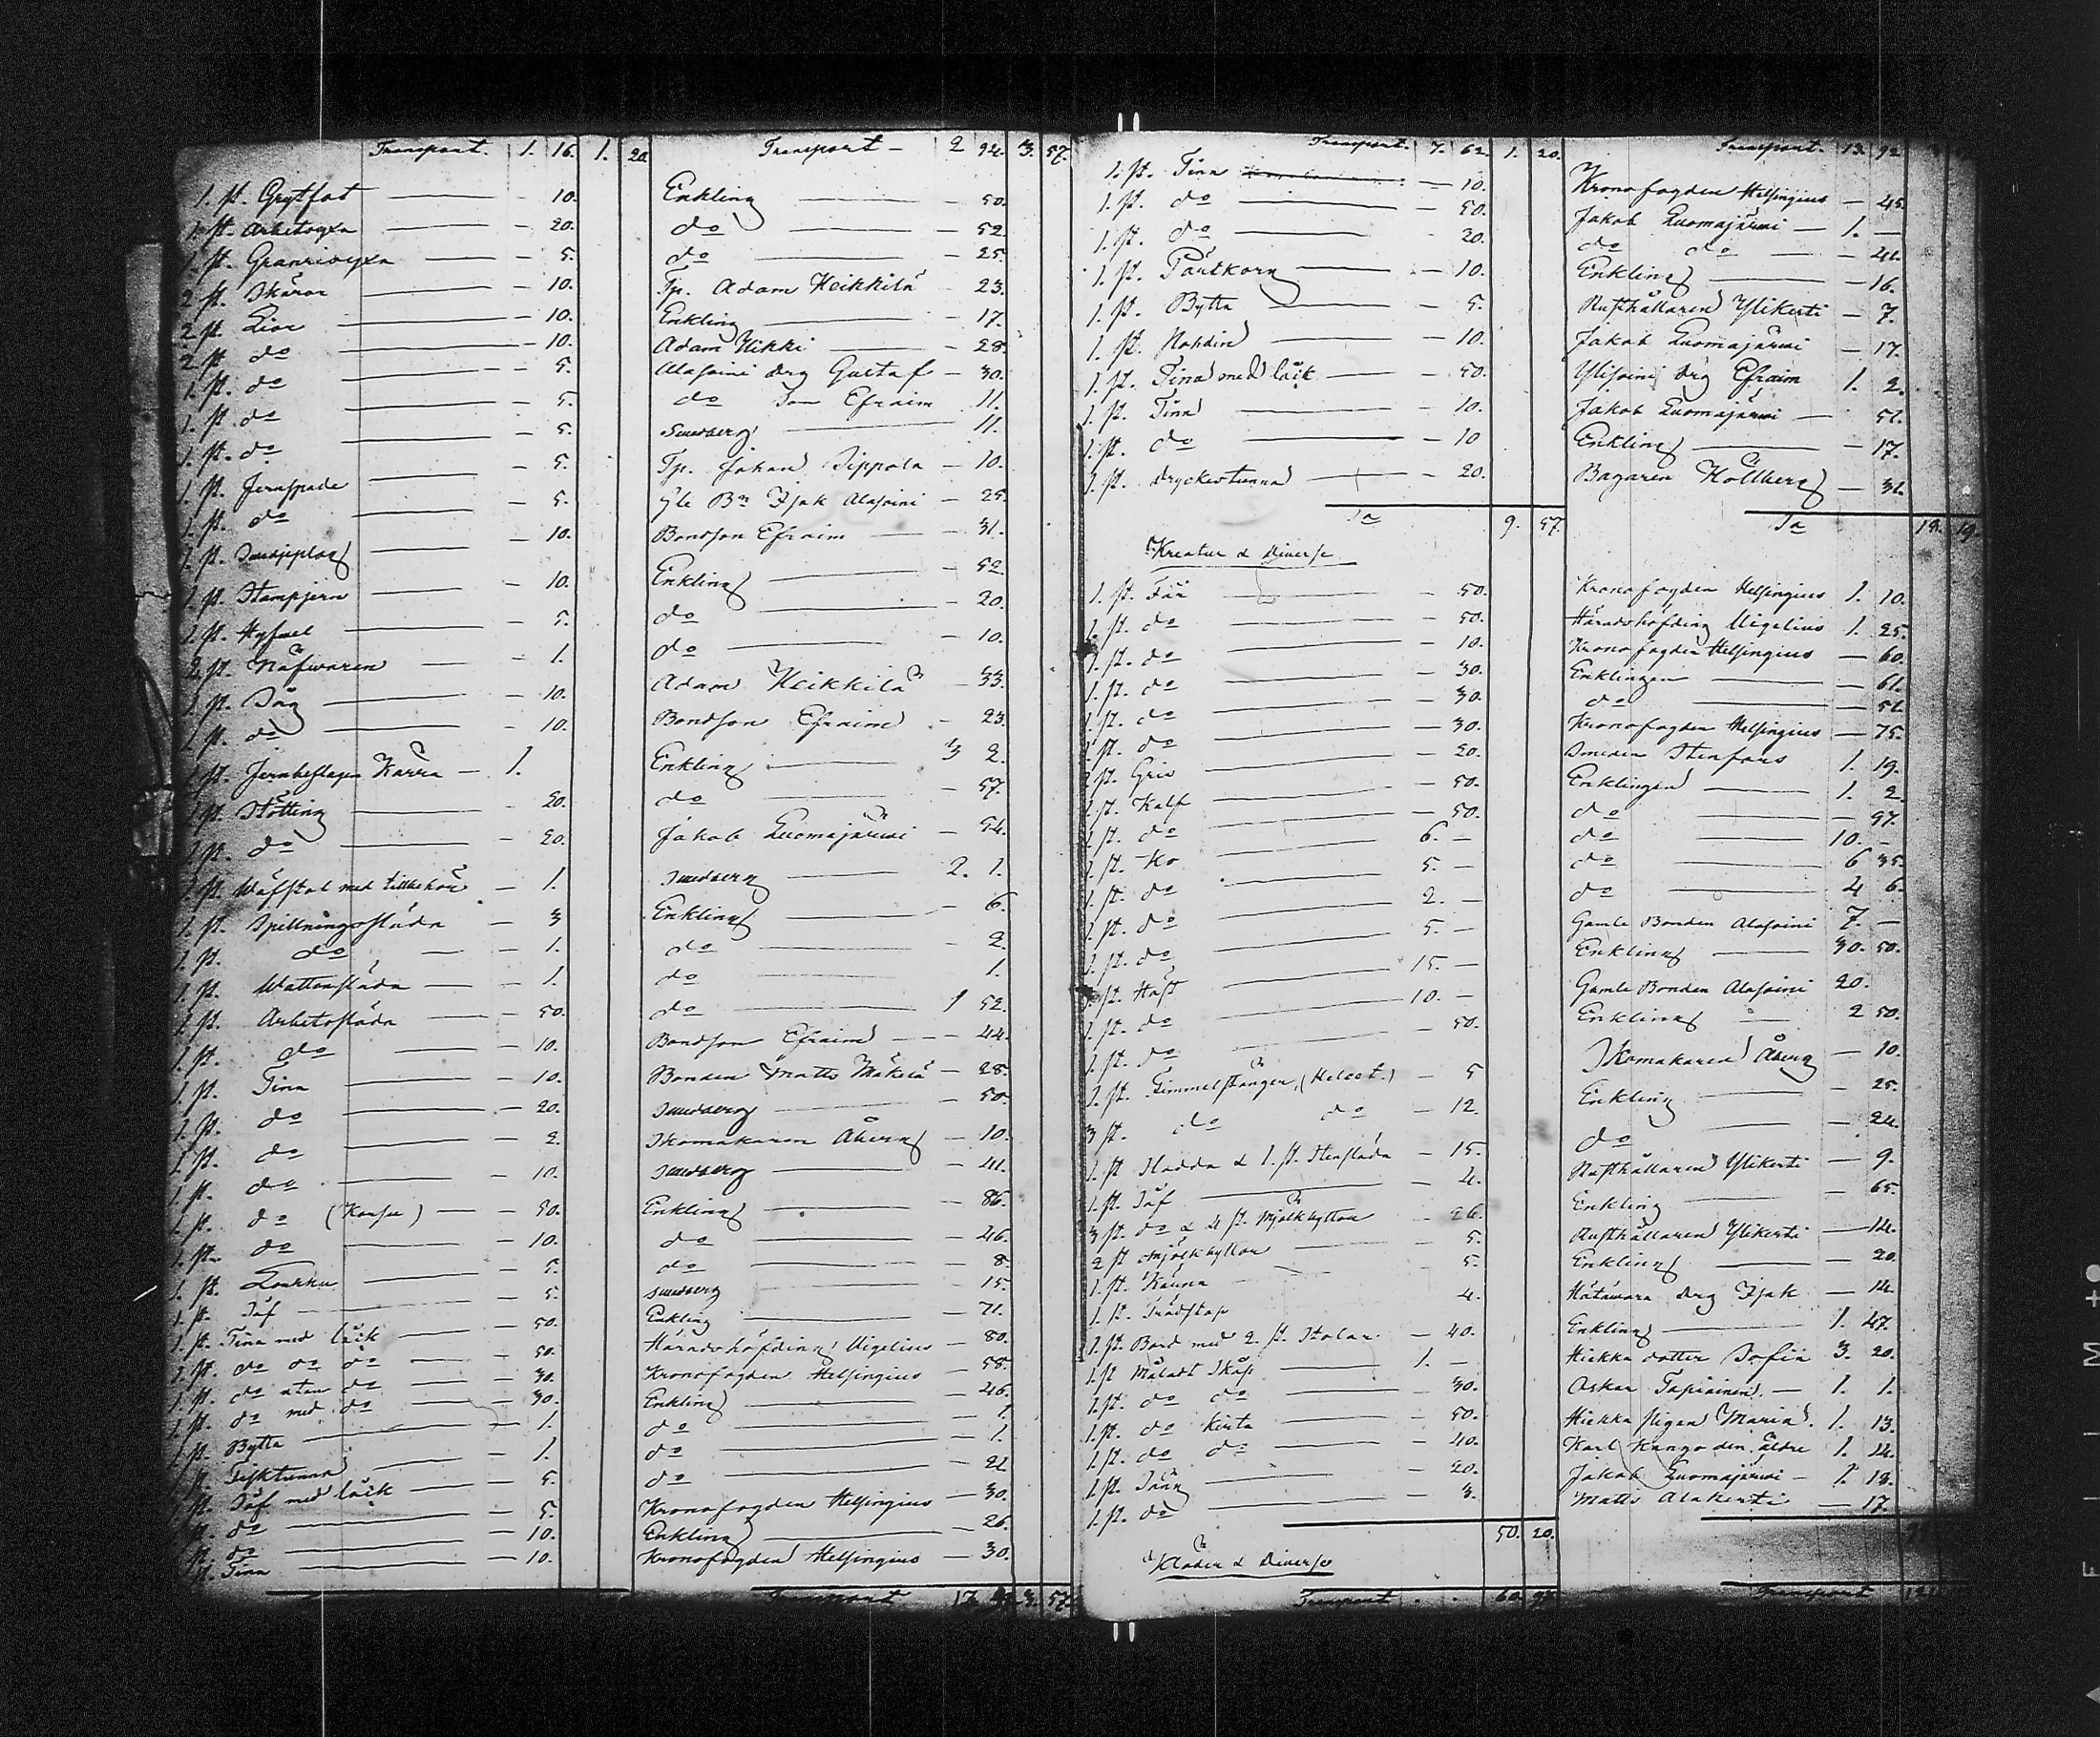 Transport. 1. 16. 1. 20. Transport — 2 94. 3. 57.
1. st. Grytfat — 10. Enkling — 50.
1. st. Arbetsyxa — 20. do — 52.
1. st. Granrisyxa — 5. do — 25
2 st. Skäror — 10. Tp. Adam Heikkilä — 23.
2 st. Liar — 10. Enkling — 17.
2 st. do — 10. Adam Hikki — 28.
1. st. do — 5. Alasoini drg Gustaf — 30.
1. st. do — 5. do Son Efraim 11.
1. st. do — 5. Smedberg — 11.
1. st. Jernspade — 5. Tp. Johan Sippola — 10.
1. st. do — 5. Gle Bn Isak Alasoini — 25.
1. st. — 10. Bondson Efraim — 31.
1. st. Stampjern — 10. Enkling — 52.
1. st. Hyfvel — 5. do — 20.
2. st. Näfwaren — 1. do — 10.
1. st. Såg — 10. Adam Heikkilä — 33.
1. st. do — 10. Bondson Efraim — 23.
1. st. Jernbeslagen Kärra — 1. Enkling — 3 2.
1. st. Stötting — 20. do — 57.
1. st. do — 20. Jakob Luomajärwi — 54.
1. st. Wäfstol med tillbehör — 1. Smedberg — 2. 1.
1. st. Spillningssläda — 3 Enkling — 6.
1. st. do — 1. do — 2.
1. st. Wattensläda — 1. do — 1.
1. st. Arbetssläda — 50. do — 1 52.
1. st. do — 10. Bondson Efraim — 44.
1. st. Tina — 10. Bonden Matts Mäkelä — 28.
1. st. do — 20. Smedberg — 50.
1. st. do — 2. Skomakaren Åberg — 10.
1. st. do — 10. Smedberg — 41.
1. st. do (Korsu) — 50. Enkling — 86.
1. st. do — 10. do — 46.
1. st. Lourku — 5. do — 8.
1. st. Såf — 5. Smedberg — 15.
1. st. Tina med låck — 50. Enkling — 71.
1. st. do do do — 50. Häradshöfding Uigelius — 80.
1. st. do utan do — 30. Kronofogden Helsingius — 58.
1. st. do med do — 30. Enkling — 46.
1. st. Bytta — 1. do — 1.
1. st. Fisktunna — 1. do — 1.
1. st. Såf med låck — 5. do — 21
1. st. do — 5. Kronofogden Helsingius — 30.
1. st. do — 10. Enkling — 26.
1. st. Tina — 10. Kronofogden Helsingius — 30.
Transport 3. 57.
Transport. 7. 62. 1. 20. Transport. 13. 92
1. st. Tina — 10. Kronofogden Helsingius — 45.
1. st. do — 50. Jakob Luomajärwi — 1. —
1. st. do — 20. do do — 41.
1. st. — 10. Enkling — 16.
1. st. Bytta — 5. Rusthållaren Ylikerti — 7.
1. st. — 10. Jakob Luomajärwi — 17.
1. st. Tina med låck — 50. Ylisoini drg Efraim 1. 2.
1. st. Tina — 10. Jakob Luomajärwi — 51.
1. st. do — 10 Enkling — 17.
1. st. dryckestunna — 20. Bagaren Höllberg — 31.
Sa 9. 57. Sa 19.
Kreatur & Diverse
1. st. Får — 50. Kronofogden Helsingius 1. 10.
1. st. do — 50. Häradshöfding Uigelius 1. 25.
1. st. do — 10. Kronofogden Helsingius — 60.
1. st. do — 30. Enklingen — 61.
1. st. do — 30. do — 51.
1. st. do — 30. Kronofogden Helsingius — 75.
2 st. Gris — 20. Smeden Stenfors 1. 19.
1. st. Kalf — 50. Enklingen 1. 2.
1. st. do — 50. do — 97.
1. st. Ko — 6. — do 10. —
1. st. do — 5. — do 6 35.
1. st. do — 2. — do 4 6.
1. st. do — 5. — Gamle Bonden Alasoini 7. —
1. st. Häst — 15. — Enkling 30. 50.
1. st. do — 10. — Gamle Bonden Alasoini 20.
1. st. do — 50. Enkling 2 50.
1. st. Timmelstänger (Helcot.) — 5 Skomakaren Åberg — 10.
3 st. do do — 12. Enkling — 25.
1. st Sladda & 1. st. Stensläda — 15. do — 24.
1. st. Såf — 4. Rusthållaren Ylikerti — 9.
3 st. do & 4 st. Mjölkbyttor — 26. Enkling — 65.
2 st Mjölkbyttor — 5. Rusthållaren Ylikerti — 14.
1. st. Kauna — 5. Enkling — 20.
1. st. Trädstop 4. Hätäwara drg Isak — 14.
1. st. Bord med 2. st. Stolar — 40. Enkling 1. 47.
1. st Måladt Skåp — 1. — Hiekka dotter Sofia 3. 20.
1. st. do do — 30. Oskar Tapiainen — 1. 1.
1. st. do Kista — 50. Hiekka pigan Maria 1. 13.
1. st. do do — 40. Karl Kango den äldre 1. 14.
1. st. Säng — 20. Jakob Luomajärwi — 1. 13.
1. st. do — 3. Matts Alakerti — 17.
50. 20.
Kläder & Diverse
Transport . . 60. 97. Transport